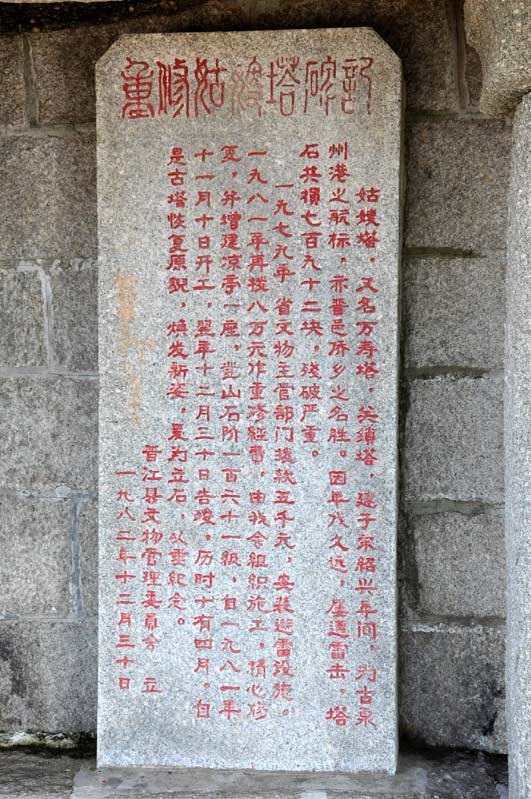 重修姑嫂塔碑記
姑嫂塔，又名万寿塔，关锁塔，建于宋绍兴年间，为古泉
州港之航标，亦晋邑侨乡之名胜。因年代久远，屡遭雷击，塔
石共损七百九十二块，残破严重。
一九七九年省文物主管部门拨款五千元，安装避雷设施。
一九八一年再拨八万元作重修经费，由我会组织施工，精心修
复，并增建凉亭一座，登山石阶一百六十一级，自一九八一年
十一月十日开工，翌年十二月三十日告竣，历时十有四月。自
是古塔恢复原貌，焕发新姿，爰为立石，以垂纪念。
晋江县文物管理委员会 立
一九八二年十二月三十日